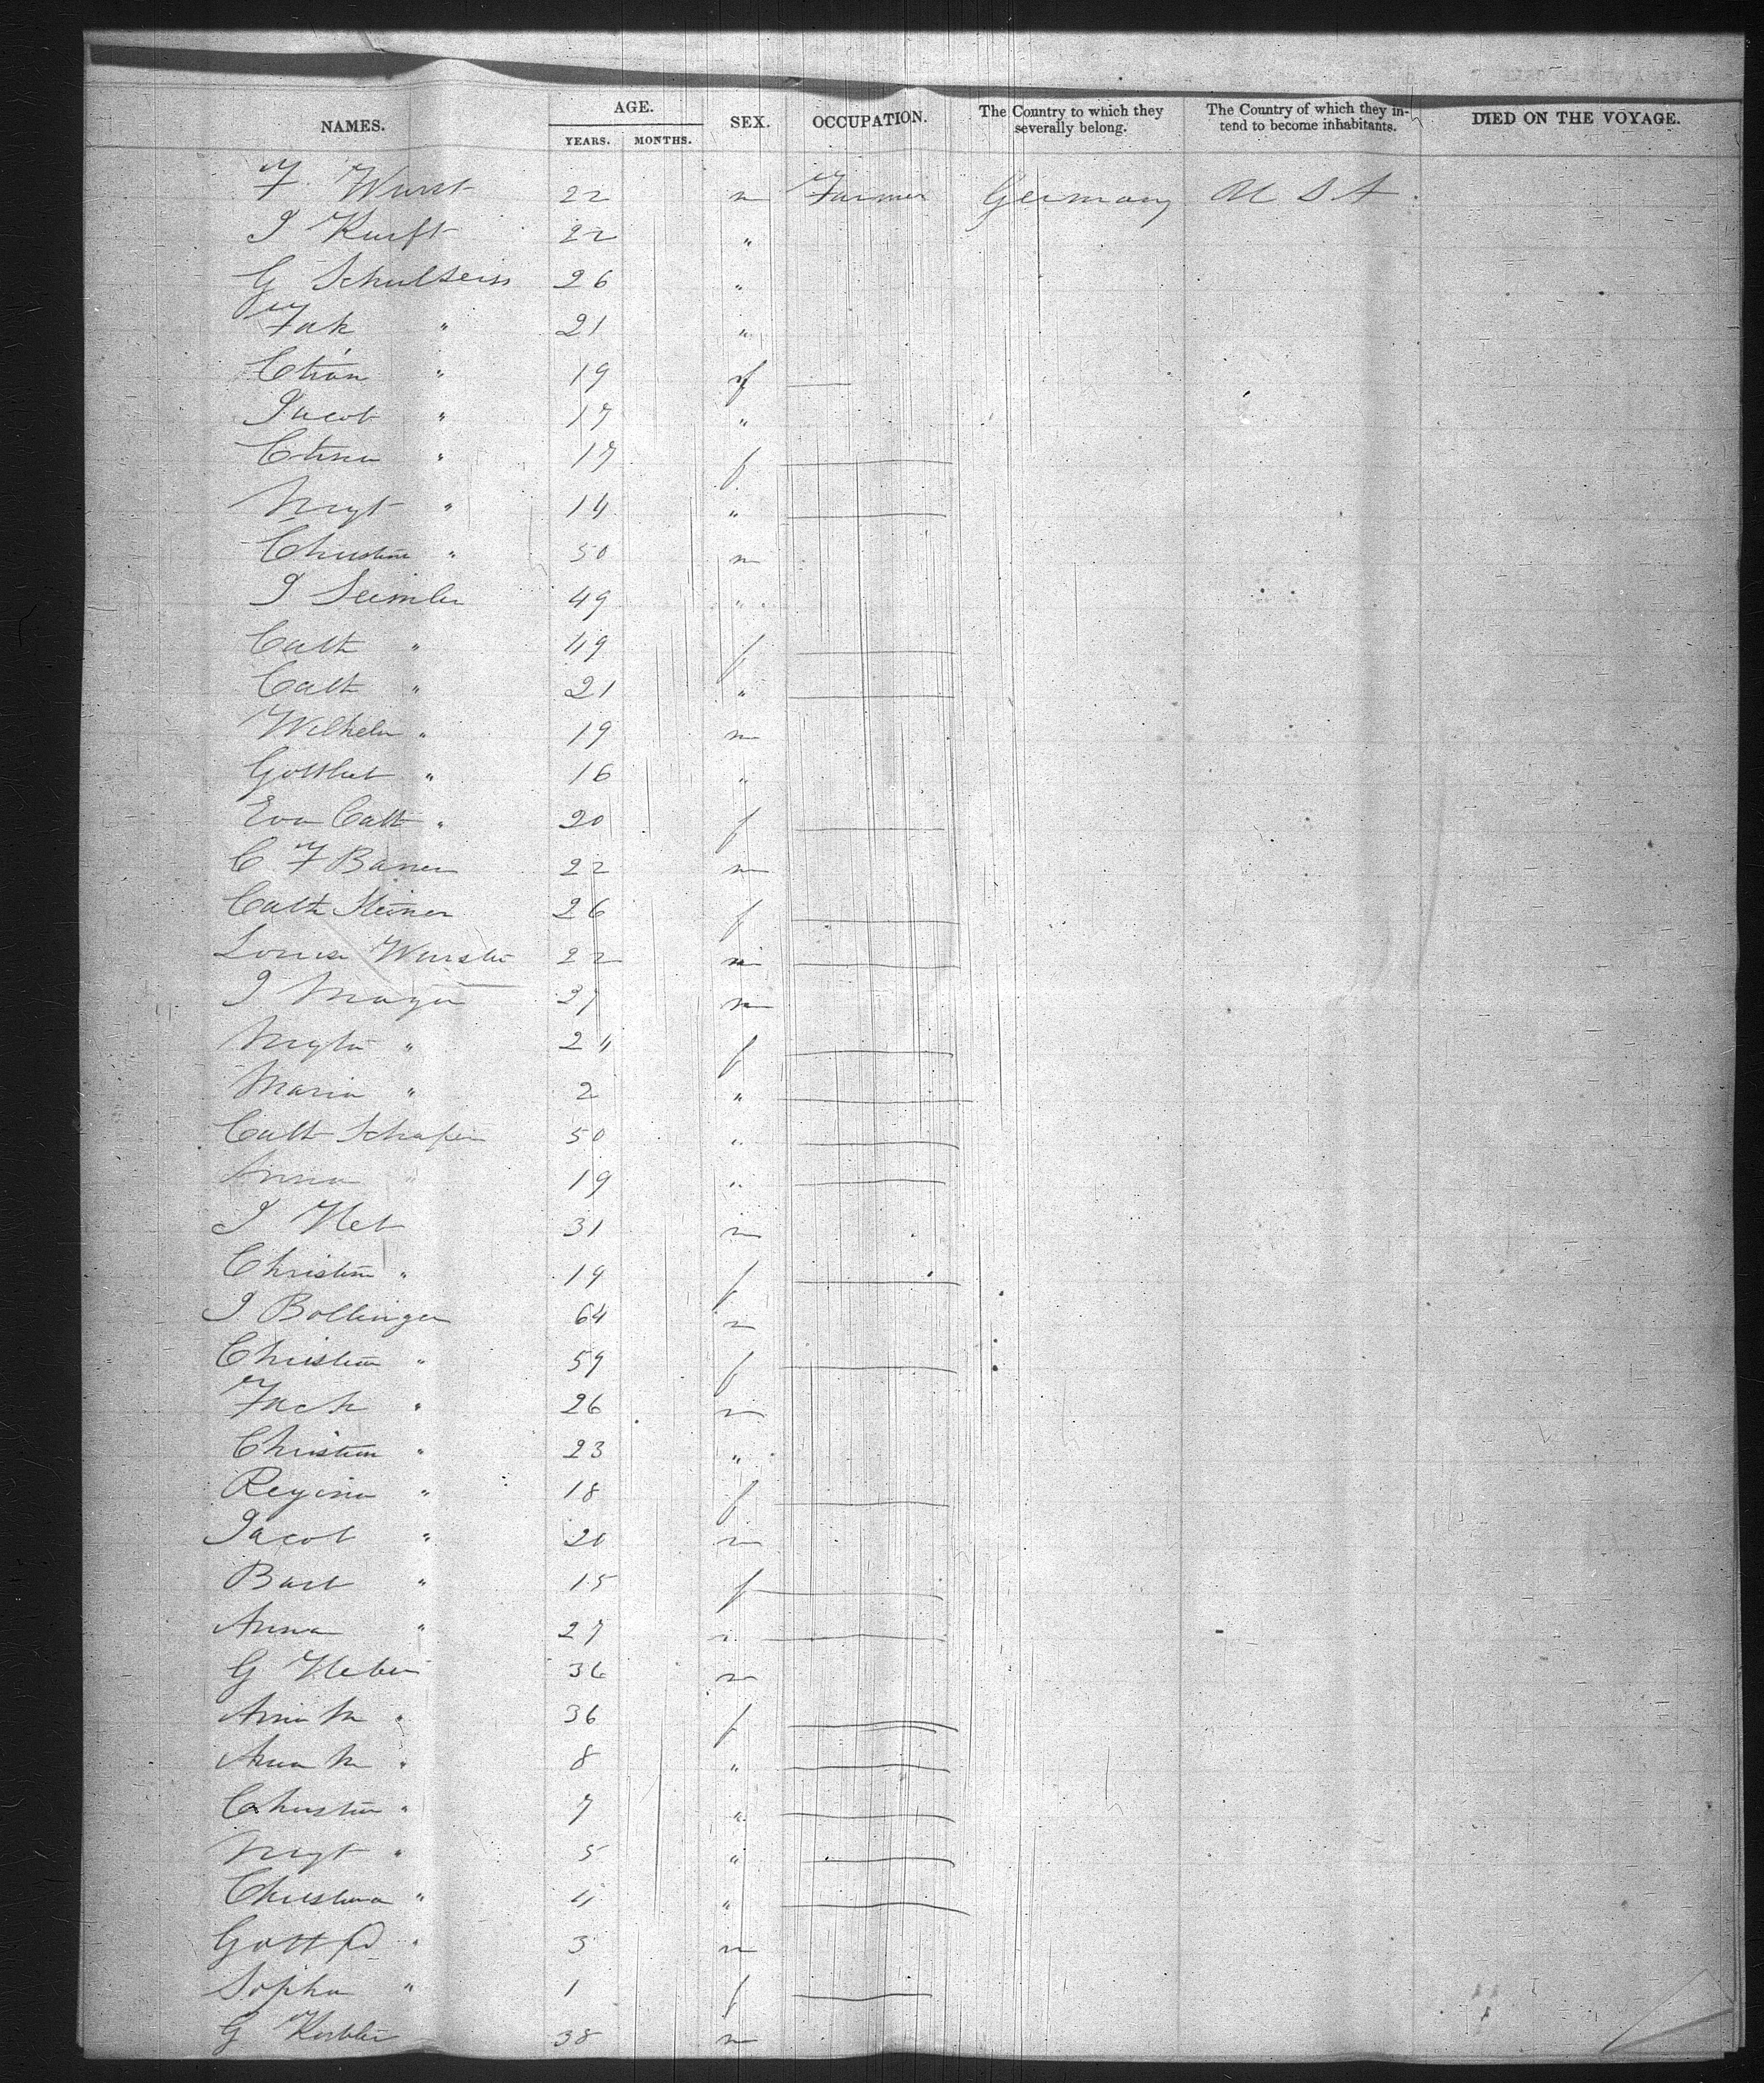 NAMES. AGE. SEX. OCCUPATION. The Country to which they severally belong. The Country of which they intend to become inhabitants. DIED ON THE VOYAGE.
YEARS. MONTHS.
F. Wurst 22 m Farmer Germany U S A
J Kurft 22 "
G Schultseiss 26 "
" 21 "
19 —
Jacob " 17 "
Ctina " 17 f —
Mgt " 14 " —
Christine " 50 m
J Seimler 49 "
Cath " 49 f —
Cath " 21 " —
Wilhelm " 19 m
Gottlieb " 16 "
Eva Cath " 20 f —
C F Bauer 22 m
Cath Steiner 26 f —
Louisa Wurster 22 m —
J Mayer 27 m
" 24 f —
Maria " 2 " —
Cath Schafer 50 " —
Anna " 19 " —
J 31 m
Christine " 19 f —
J Bollinger 64 m
Christine " 59 f —
" 26 m
Christian " 23 "
Regina " 18 f —
Jacob " 20 m
Barb " 15 f —
Anna " 27 " —
G 36 m
Anna M " 36 f —
Anna M " 8 " —
Christin " 7 " —
Mgt " 5 " —
Christina " 4 " —
Gottfd " 3 m
Sophia " 1 f —
G 38 m